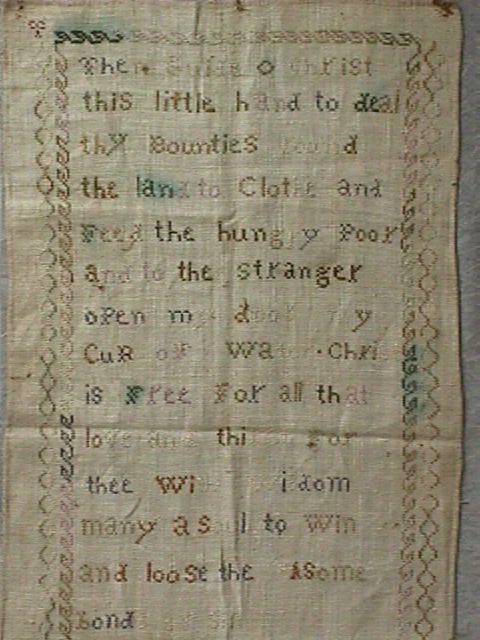 Then Guide o Christ
this little hand to deal
thy Bounties round
the land to Clothe and
Feed the hungry Poor
and to the stranger
open my door my
CuR of Water Chris
is Free For all that
love and thirst For
thee With
many a soul to Win
and loose the
bond